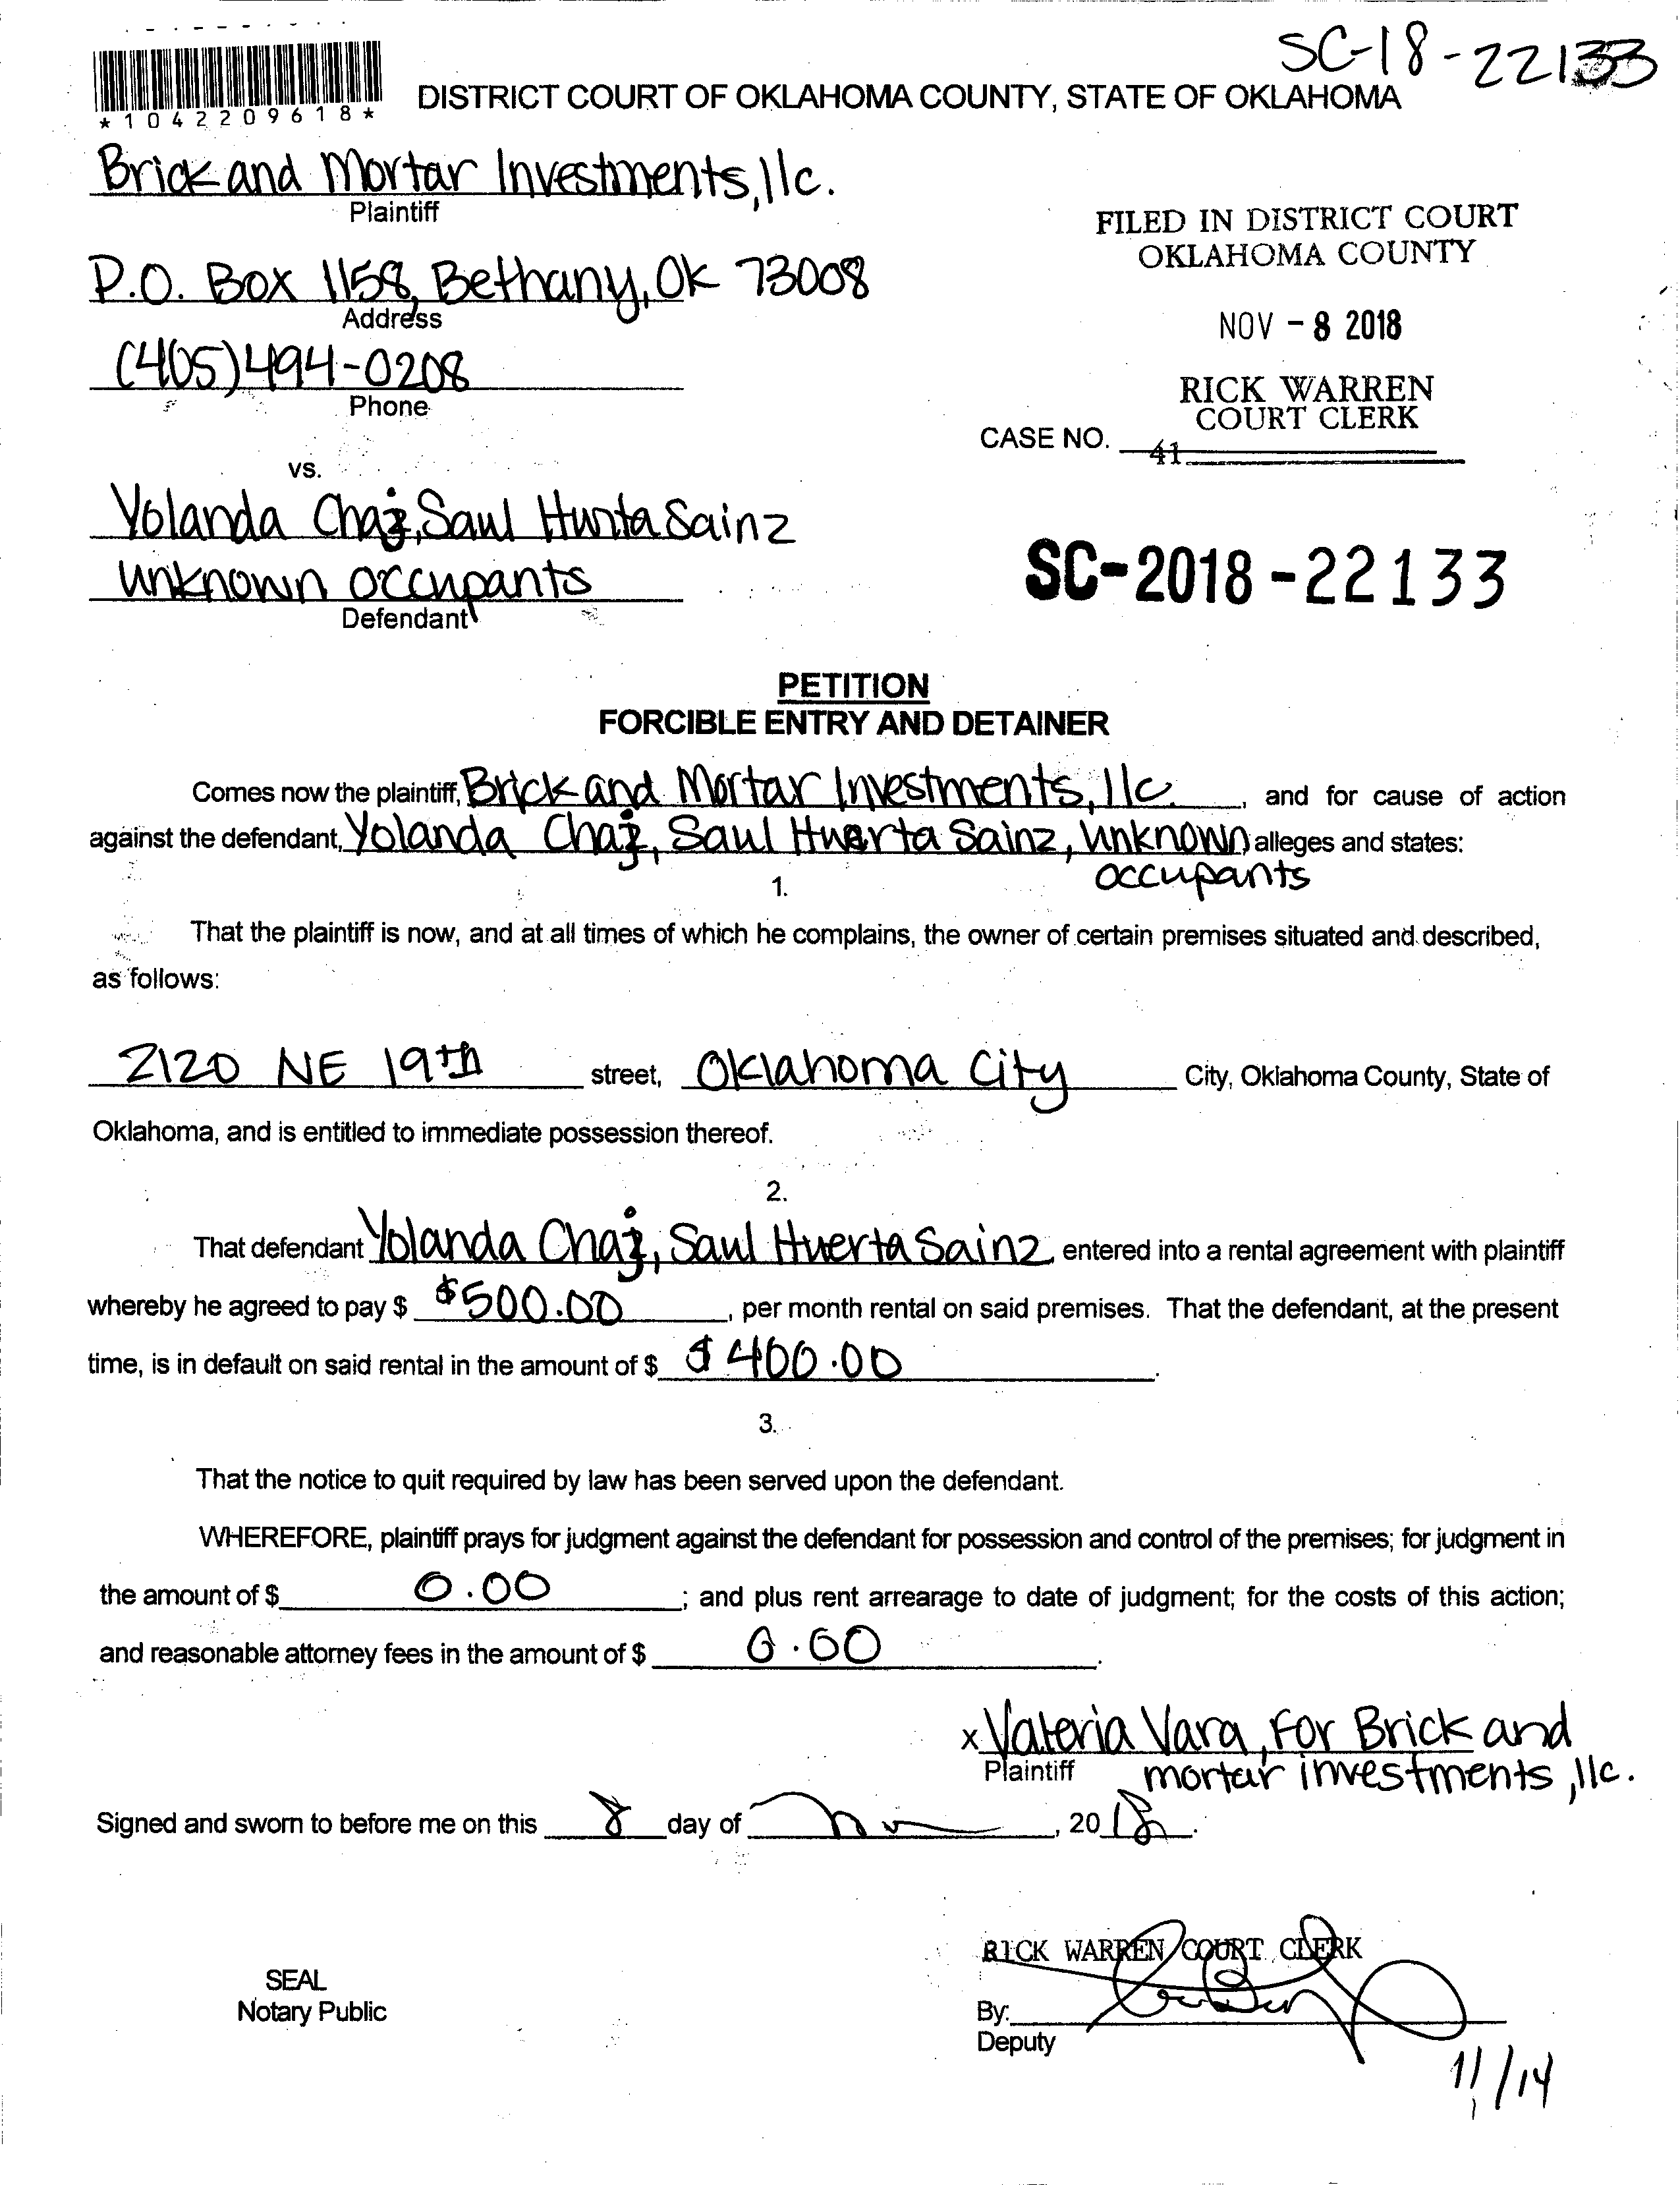 SC-18-22133
*1042209618*
DISTRICT COURT OF OKLAHOMA COUNTY, STATE OF OKLAHOMA
Brick and Mortar Investments, llc.
Plaintiff
P.O. Box 1158, Bethany, Ok 73008
Address
(405)494-0208
Phone
FILED IN DISTRICT COURT
OKLAHOMA COUNTY
NOV - 8 2018
RICK WARREN
COURT CLERK
CASE NO.
41
vs.
Yolanda Saul Sainz
unknown occupants
Defendant
SC-2018-22133
PETITION
FORCIBLE ENTRY AND DETAINER
Comes now the plaintiff, Brick and Mortar Investments, llc., and for cause of action
against the defendant, Yolanda Saul Huerta Sainz, unknown alleges and states:
occupants
1.
That the plaintiff is now, and at all times of which he complains, the owner of certain premises situated and described,
as follows:
2120 NE 19th street, Oklahoma City City, Oklahoma County, State of
Oklahoma, and is entitled to immediate possession thereof.
2.
That defendant Yolanda Saul Huerta Sainz entered into a rental agreement with plaintiff
whereby he agreed to pay $ $500.00, per month rental on said premises. That the defendant, at the present
time, is in default on said rental in the amount of $ $400.00.
3.
That the notice to quit required by law has been served upon the defendant.
WHEREFORE, plaintiff prays for judgment against the defendant for possession and control of the premises; for judgment in
the amount of $ 0.00; and plus rent arrearage to date of judgment; for the costs of this action;
and reasonable attorney fees in the amount of $ 0.00.
x Valeria Vara, For Brick and
Plaintiff mortar investments, llc.
Signed and sworn to before me on this 8 day of , 2018.
RICK WARREN COURT CLERK
SEAL
Notary Public
By:
Deputy
11/14